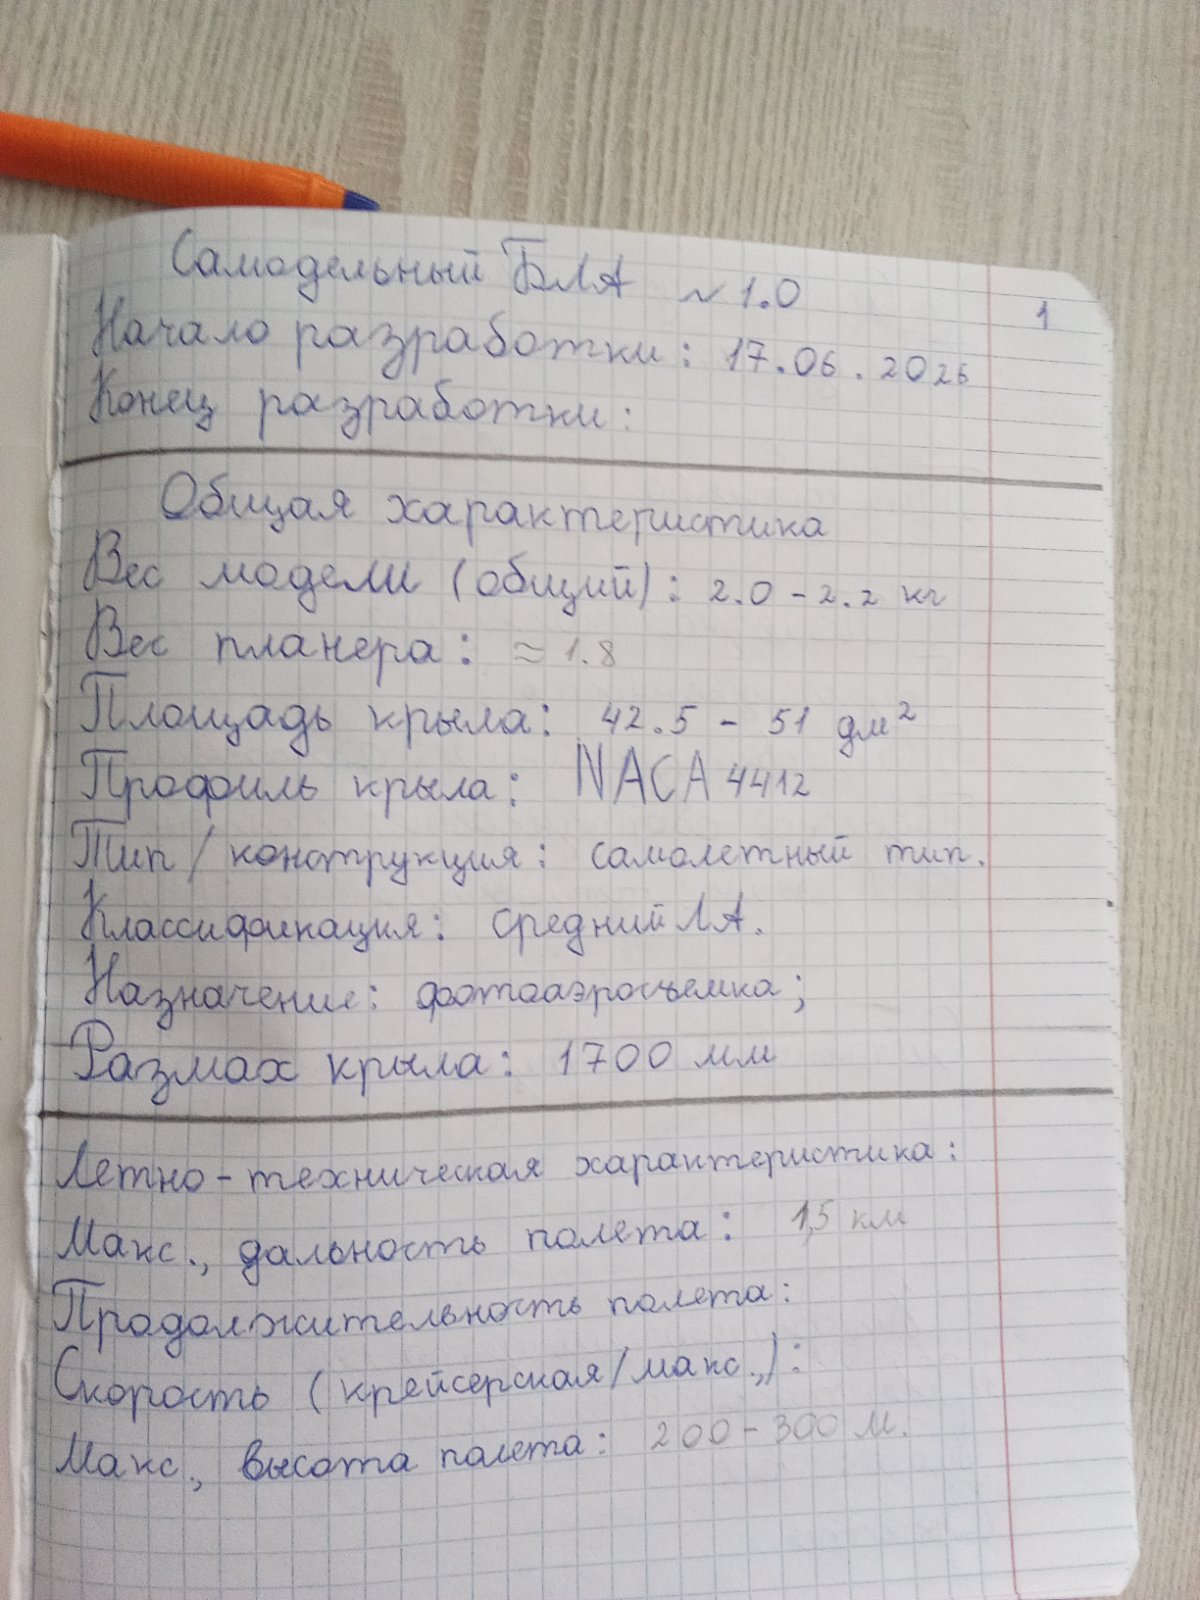 Самодельный БЛА ~ 1.0
1
Начало разработки: 17.06.2026
Конец разработки:
Общая характеристика
Вес модели (общий): 2.0 - 2.2 кг
Вес планера: ≈ 1.8
Площадь крыла: 42.5 - 51 дм²
Профиль крыла: NACA 4412
Тип / конструкция: самолетный тип.
Классификация: средний ЛА.
Назначение: фотоаэросъемка;
Размах крыла: 1700 мм
Летно-техническая характеристика:
Макс., дальность полета: 1,5 км
Продолжительность полета:
Скорость (крейсерская/макс.,):
Макс., высота полета: 200-300 м.